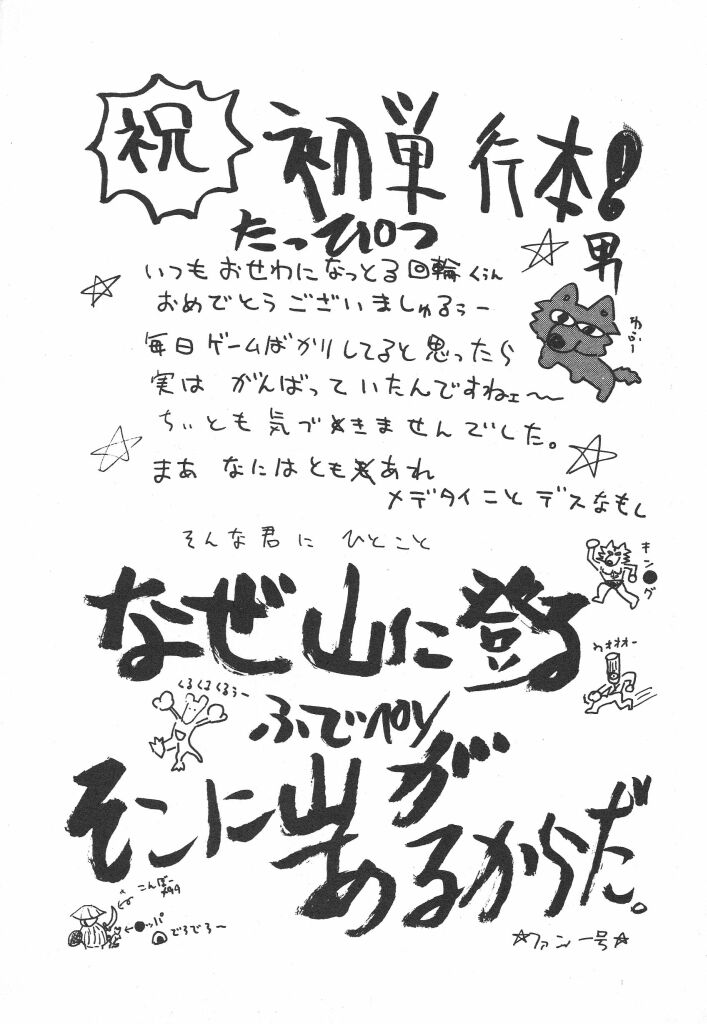 祝
初単行本!
たっぴつ
男
いつもおせわになっとる回輪くぅん
おめでとうございましゅるぅー
わふー
毎日ゲームばかりしてると思ったら
実は がんばっていたんですねェ〜
ちぃとも気づきませんでした。
まあ なにはともあれ
メデタイこと デスなもし
そんな君に ひとこと
キン●グ
なぜ山に登る
わォォォー
くるくるくるぅー
ふでペン
そこに山が
あるからだ。
こんぼー
●ッパ
でろでろー
☆ファン一号☆